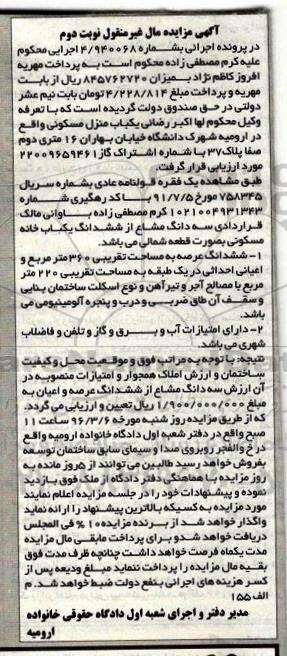 آگهی مزایده مال غیرمنقول نوبت دوم
در پرونده اجرائی بشماره ۴/۹۴۰۰۶۸ اجرایی محکوم
علیه کرم مصطفی زاده محکوم است به پرداخت مهریه
افروز کاظم نژاد بمیزان ۸۴۵۷۶۲۷۲۰ ریال از بابت
مهریه و پرداخت مبلغ ۴/۲۲۸/۸۱۴ تومان بابت نیم عشر
دولتی در حق صندوق دولت گردیده است که با تعرفه
وکیل محکوم لها اکبر رضائی یکباب منزل مسکونی واقع
در ارومیه شهرک دانشگاه خیابان بهاران ۱۶ متری دوم
صفا پلاک ۳۷ با شماره اشتراک گاز ۲۲۰۰۹۶۵۹۴۶۱
مورد ارزیابی قرار گرفت.
طبق مشاهده یک فقره قولنامه عادی بشماره سریال
۷۵۸۳۴۵ مورخ ۹۱/۷/۵ با کد رهگیری شماره
۱۰۲۱۰۰۴۹۳۱۳۴۳ کرم مصطفی زاده باوانی مالک
قراردادی سه دانگ مشاع از ششدانگ یکباب خانه
مسکونی بصورت قطعه شمالی می باشد.
۱- ششدانگ عرصه به مساحت تقریبی ۳۶۰ متر مربع و
اعیانی احداثی در یک طبقه به مساحت تقریبی ۲۲۰ متر
مربع با مصالح آجر و تیرآهن و نوع اسکلت ساختمان بنایی
و سقف آن طاق ضربی و درب و پنجره آلومینیومی می
باشد.
۲- دارای امتیازات آب و برق و گاز و تلفن و فاضلاب
شهری می باشد.
نتیجه: با توجه به مراتب فوق و موقعیت محل و کیفیت
ساختمان و ارزش املاک همجوار و امتیازات منصوبه در
آن ارزش سه دانگ مشاع از ششدانگ عرصه و اعیان به
مبلغ ۱/۹۰۰/۰۰۰/۰۰۰ ریال تعیین و ارزیابی می گردد.
که از طریق مزایده روز شنبه مورخه ۹۶/۳/۶ ساعت ۱۱
صبح واقع در دفتر شعبه اول دادگاه خانواده ارومیه واقع
در خ والفجر روبروی صدا و سیمای سابق ساختمان توسعه
بفروش خواهد رسید طالبین می توانند از ۵ روز مانده به
روز مزایده با هماهنگی دفتر دادگاه از ملک فوق بازدید
نموده و پیشنهادات خود را در جلسه مزایده اعلام نمایند
مورد مزایده به کسیکه بالاترین پیشنهاد را ارائه نماید
واگذار خواهد شد از برنده مزایده ۱۰% فی المجلس
دریافت خواهد شد و برای پرداخت مابقی مال مزایده
مدت یکماه فرصت خواهد داشت چنانچه ظرف مدت فوق
بقیه مال مزایده را پرداخت ننماید مبلغ ودیعه پس از
کسر هزینه های اجرائی بنفع دولت ضبط خواهد شد. م
الف ۱۵۵
مدیر دفتر و اجرای شعبه اول دادگاه حقوقی خانواده
ارومیه